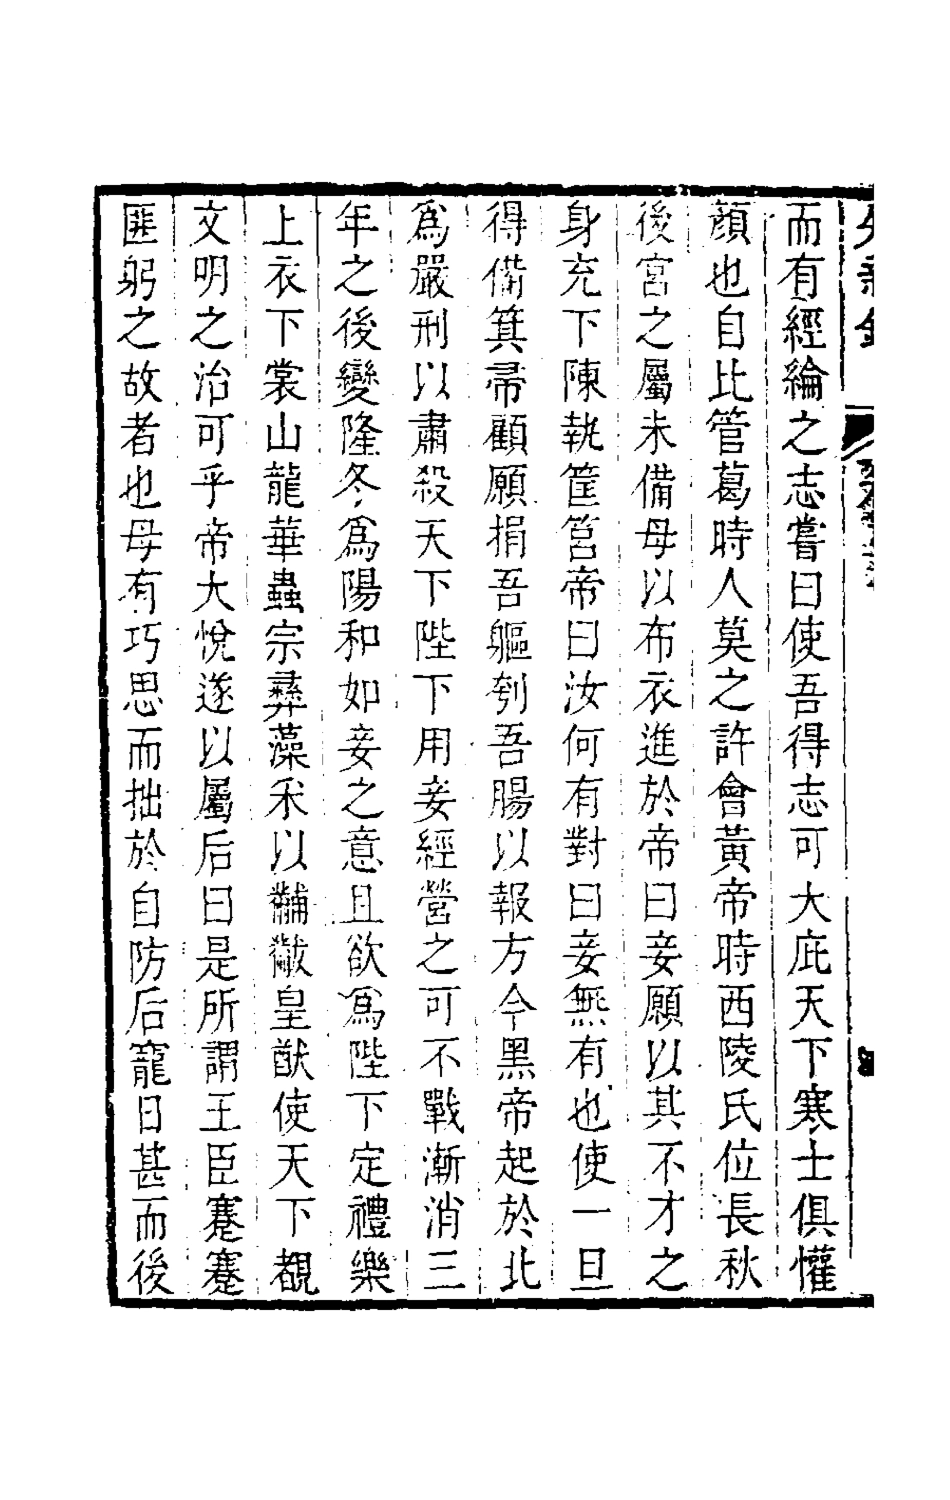 而有經綸之志嘗曰使吾得志可大庇天下寒士俱懽
顔也自比管葛時人莫之許會黃帝時西陵氏位長秋
後宮之屬未備母以布衣進於帝曰妾願以其不才之
身充下陳執筐筥帝曰汝何有對曰妾無有也使一旦
得備箕帚顧願捐吾軀刳吾腸以報方今黑帝起於北
爲嚴刑以肅殺天下陛下用妾經營之可不戰漸消三
年之後變隆冬爲陽和如妾之意且欲爲陛下定禮樂
上衣下裳山龍華蟲宗彝藻米以黼黻皇猷使天下覩
文明之治可乎帝大悅遂以屬后曰是所謂王臣蹇蹇
匪躬之故者也母有巧思而拙於自防后寵日甚而後